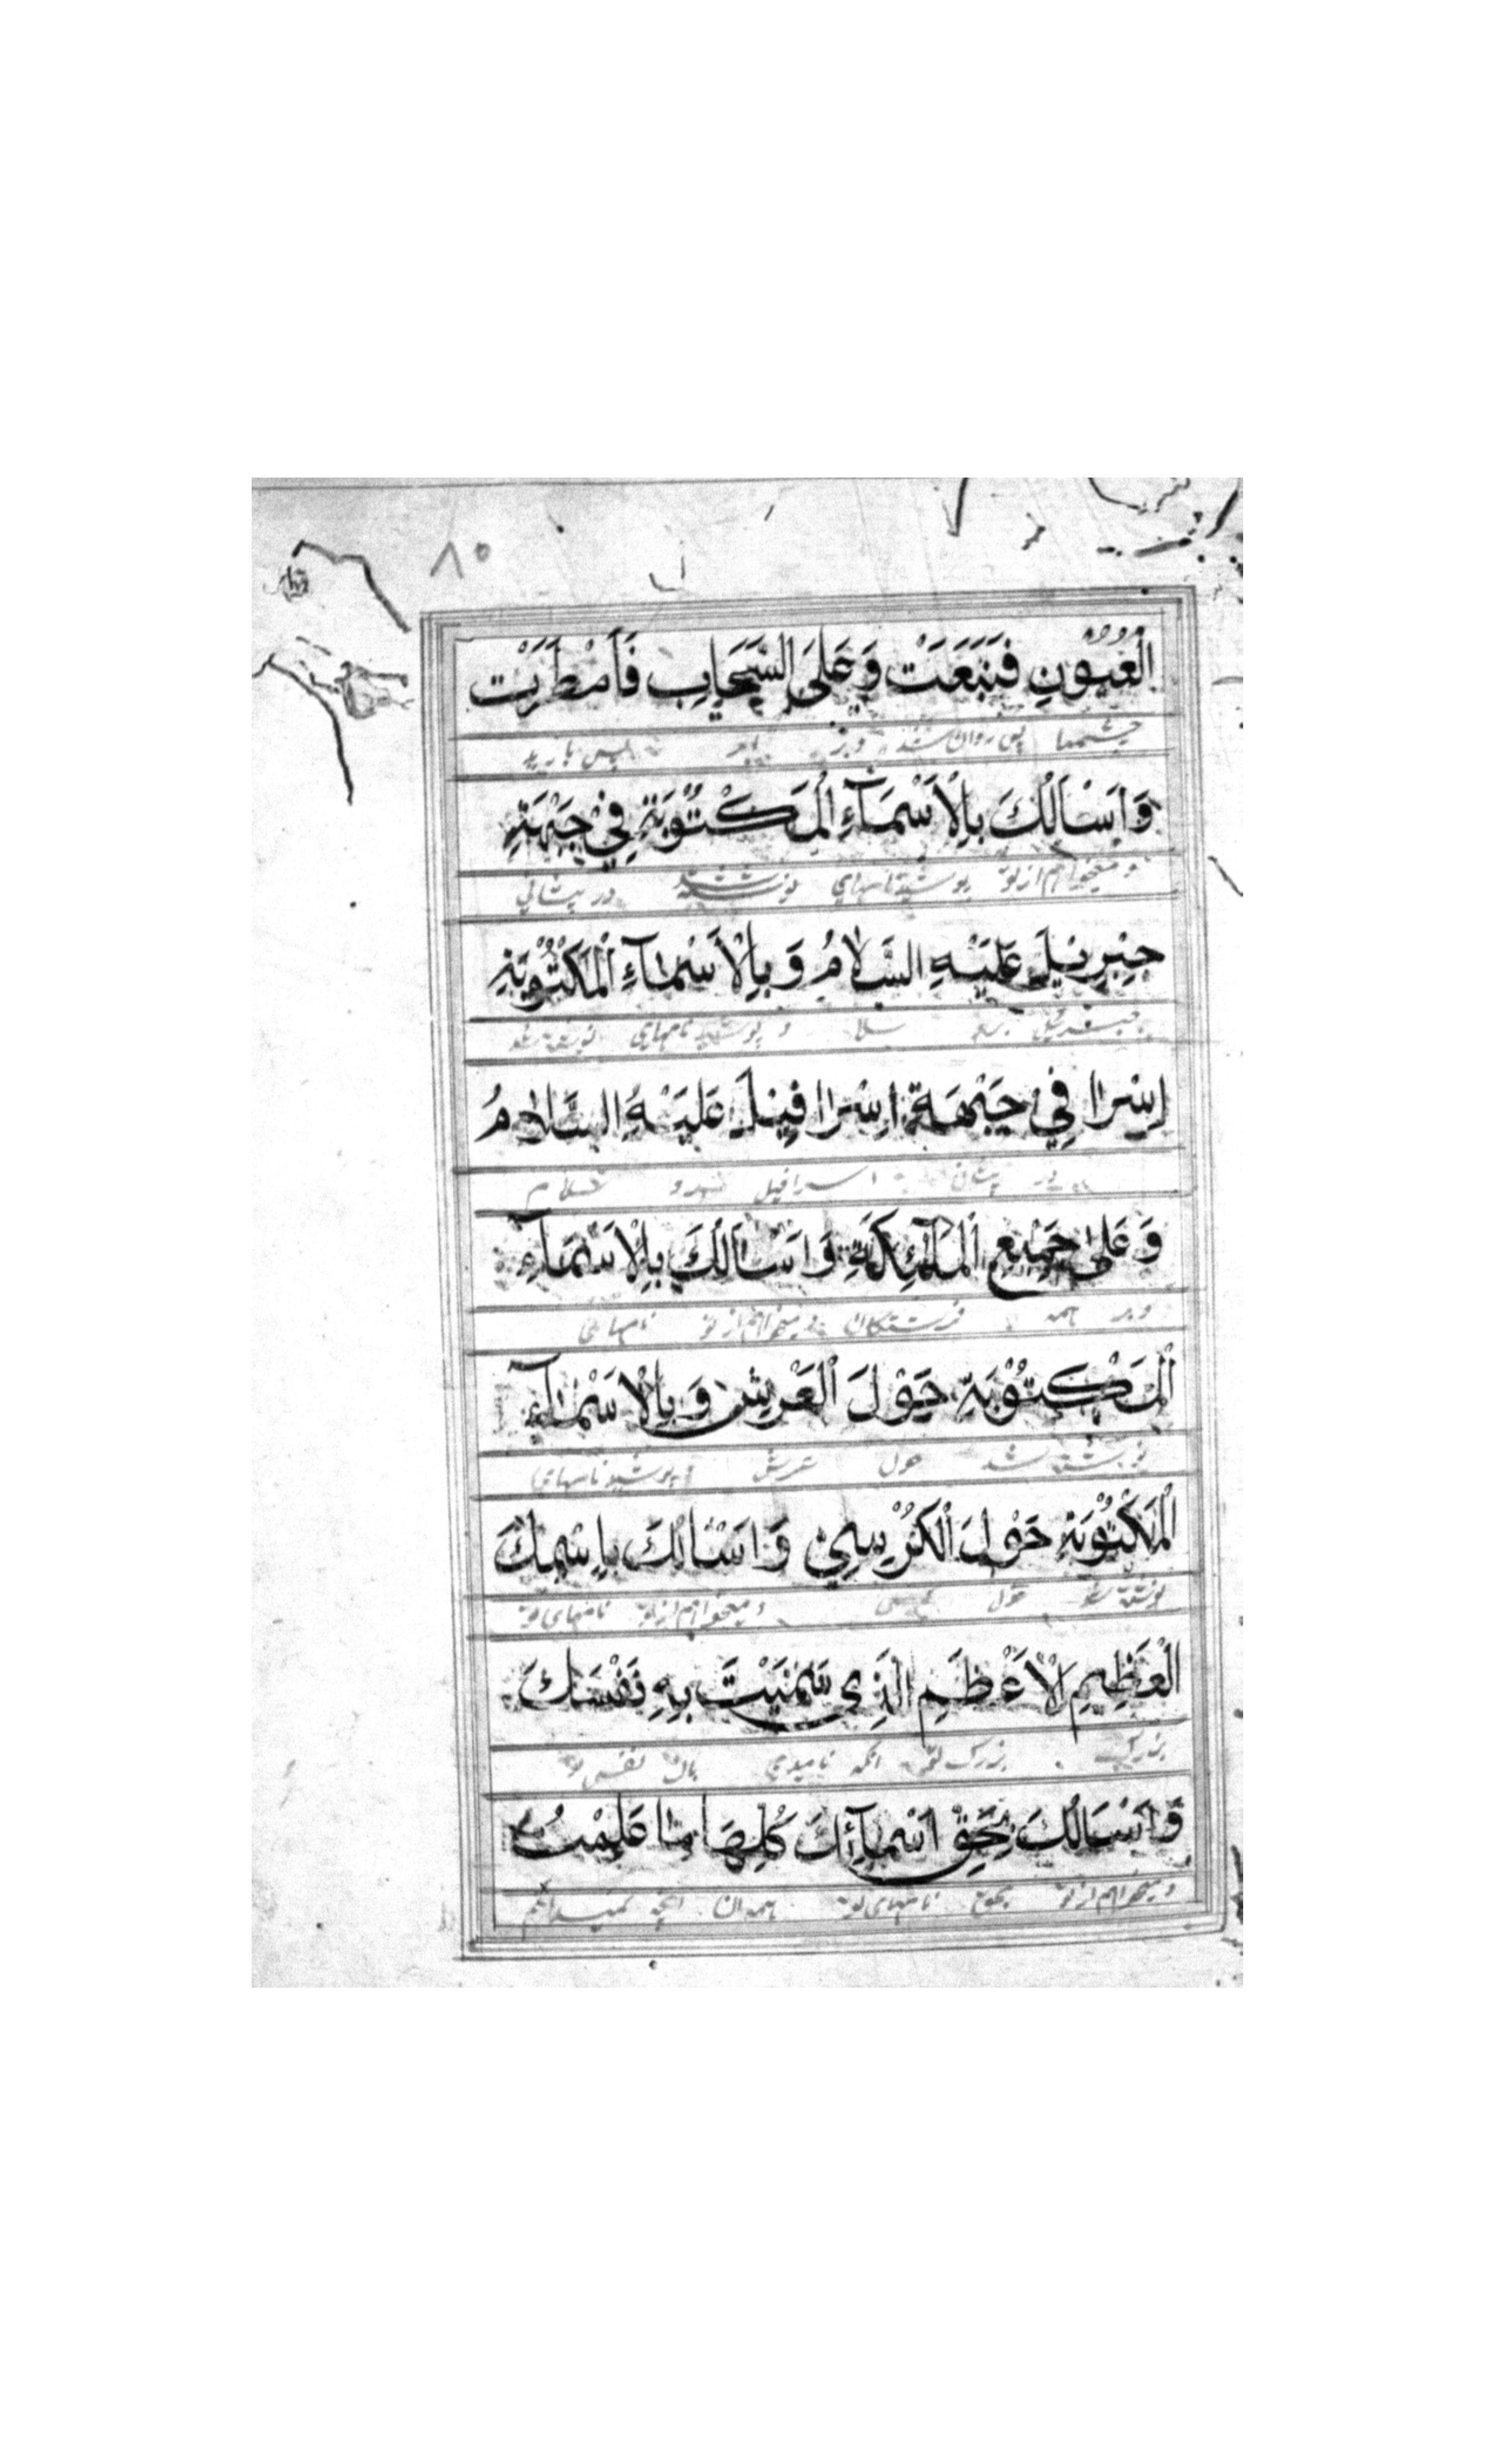 ۸۰
الْعُيُوْنِ فَنَبَعَتْ وَ عَلَى السَّحَابِ فَأَمْطَرَتْ
چشمها پس روان شدند و بر ابر پس بارید
وَ اَسْاَلُكَ بِالْاَسْمَآءِ الْمَكْتُوْبَةِ فِيْ جَبْهَةِ
و میخواهم از تو نامهای نوشته شد در پیشانی
جِبْرِيْلَ عَلَيْهِ السَّلَامُ وَ بِالْاَسْمَآءِ الْمَكْتُوْبَةِ
جبرئیل سلام و نامهای نوشته شد
اِسْرا فِي جَبْهَةِ اِسْرَافِيْلَ عَلَيْهِ السَّلَامُ
در پیشانی اسرافیل سلام
وَ عَلٰى جَمِيْعِ الْمَلٰٓئِكَةِ وَ اَسْاَلُكَ بِالْاَسْمَآءِ
و بر همه فرشتگان و میخواهم از تو نامهای
الْمَكْتُوْبَةِ حَوْلَ الْعَرْشِ وَ بِالْاَسْمَآءِ
نوشته شد حول عرش نامهای
الْمَكْتُوْبَةِ حَوْلَ الْكُرْسِيِّ وَ اَسْاَلُكَ بِاِسْمِكَ
نوشته شد حول و میخواهم از تو نامهای تو
الْعَظِيْمِ الْاَعْظَمِ الَّذِي سَمَّيْتَ بِهِ نَفْسَكَ
بزرگ بزرگ انکه نامیدی بان نفس تو
وَ اَسْاَلُكَ بِحَقِّ اَسْمَآئِكَ كُلِّهَا مَا عَلِمْتُ
و میخواهم از تو بحق نامهای تو همه ان انچه